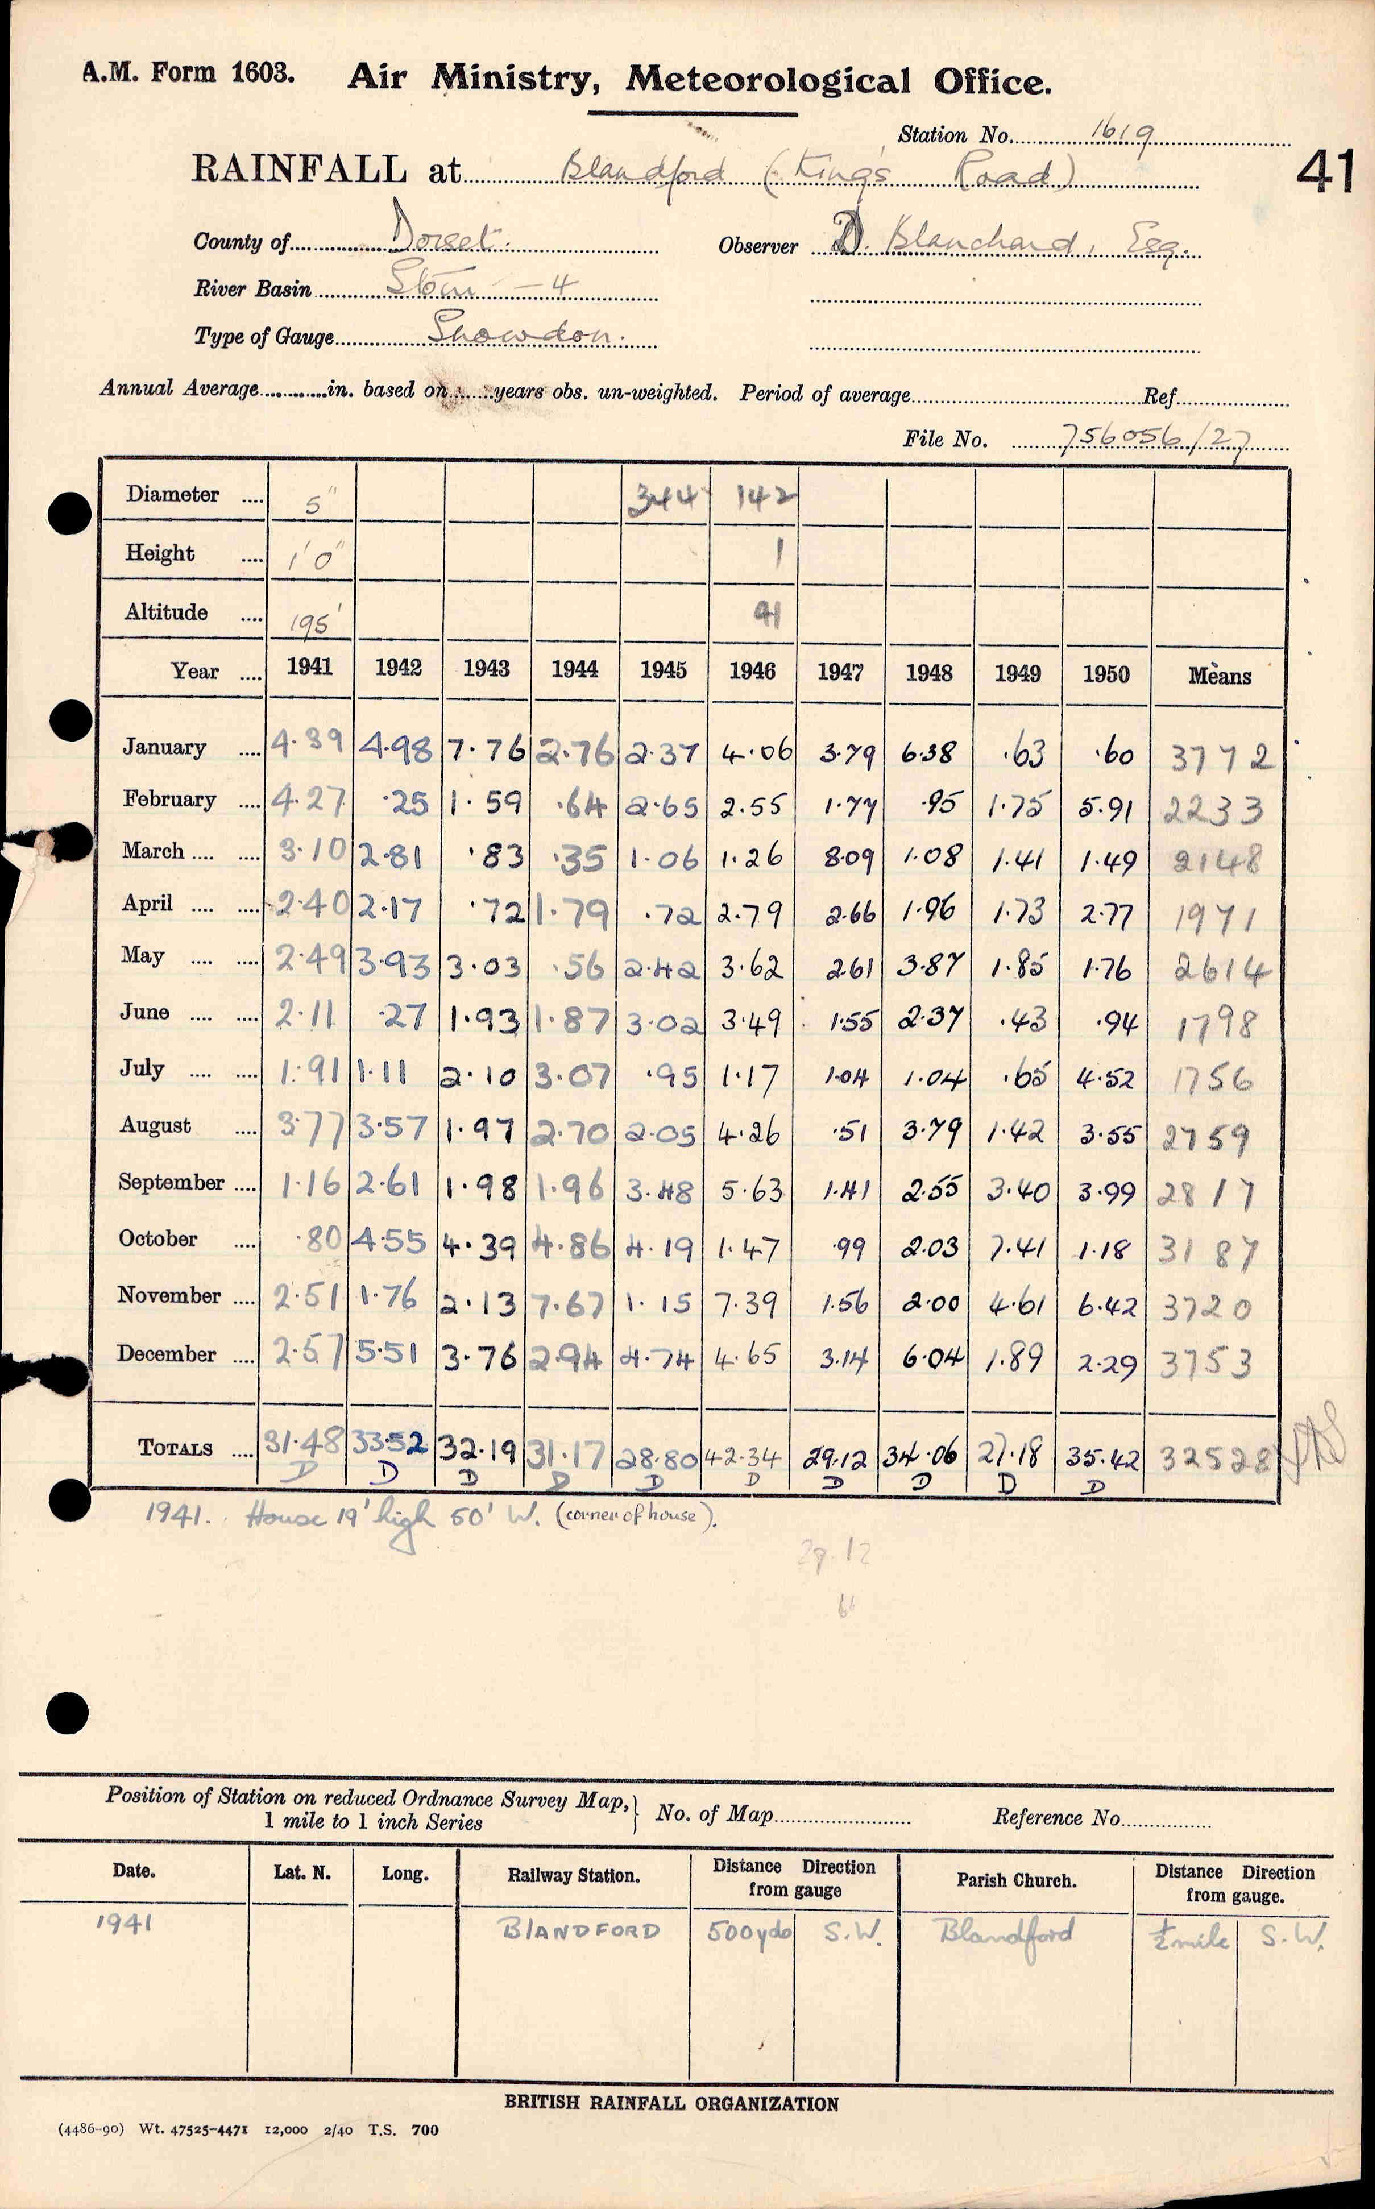 A.M. Form 1603. Air Ministry, Meteorological Office.
Station No. 1619
RAINFALL at Blandford (King's Road)
41
County of Dorset. Observer D. Blanchard, Esq.
River Basin Stour — 4
Type of Gauge Snowdon.
Annual Average in. based on years obs. un-weighted. Period of average Ref
File No. 756056/27
Diameter .... 5" 344 142
Height .... 1'0" 1
Altitude .... 195' 91
Year .... 1941 1942 1943 1944 1945 1946 1947 1948 1949 1950 Means
January .... 4.39 4.98 7.76 2.76 2.37 4.06 3.79 6.38 .63 .60 3772
February .... 4.27 .25 1.59 .64 2.65 2.55 1.77 .95 1.75 5.91 2233
March .... .... 3.10 2.81 .83 .35 1.06 1.26 8.09 1.08 1.41 1.49 2148
April .... .... 2.40 2.17 .72 1.79 .72 2.79 2.66 1.96 1.73 2.77 1971
May .... .... 2.49 3.93 3.03 .56 2.42 3.62 2.61 3.87 1.85 1.76 2614
June .... .... 2.11 .27 1.93 1.87 3.02 3.49 1.55 2.37 .43 .94 1798
July .... .... 1.91 1.11 2.10 3.07 .95 1.17 1.04 1.04 .65 4.52 1756
August .... 3.77 3.57 1.97 2.70 2.05 4.26 .51 3.79 1.42 3.55 2759
September .... 1.16 2.61 1.98 1.96 3.48 5.63 1.41 2.55 3.40 3.99 2817
October .... .80 4.55 4.39 4.86 4.19 1.47 .99 2.03 7.41 1.18 3187
November .... 2.51 1.76 2.13 7.67 1.15 7.39 1.56 2.00 4.61 6.42 3720
December .... 2.57 5.51 3.76 2.94 4.74 4.65 3.14 6.04 1.89 2.29 3753
TOTALS .... 31.48 33.52 32.19 31.17 28.80 42.34 29.12 34.06 27.18 35.42 32528
D D D D D D D D D D
1941. House 19' high 50' W. (corner of house).
29.12
Position of Station on reduced Ordnance Survey Map,
1 mile to 1 inch Series
No. of Map Reference No.
Date. Lat. N. Long. Railway Station. Distance Direction from gauge Parish Church. Distance Direction from gauge.
1941 BLANDFORD 500yds S.W. Blandford ½ mile S.W.
BRITISH RAINFALL ORGANIZATION
(4486-90) Wt. 47525-4471 12,000 2/40 T.S. 700